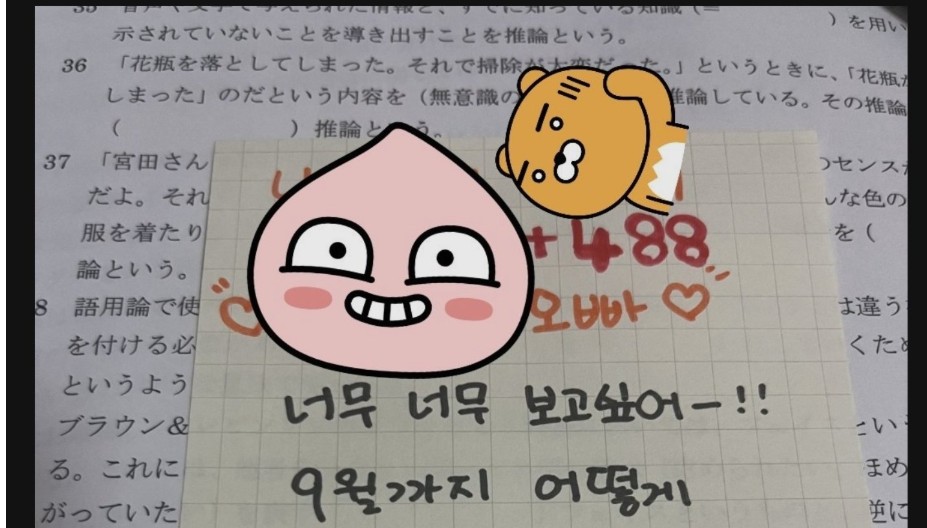 示されていないことを導き出すことを推論という。
36 「花瓶を落としてしまった。それで掃除が大変だった。」というときに、「花瓶が
しまった」のだという内容を(無意識の 推論している。その推論
( ) 推論という。
37 「宮田さん センスが
だよ。それ な色の
+488
服を着たり を(
論という。
오빠 ♡
8 語用論で使 は違う
を付ける必 くため
というよう
너무 너무 보고싶어-!!
ブラウン& とい
る。これに まめ
9월까지 어떻게
がっていた 逆に